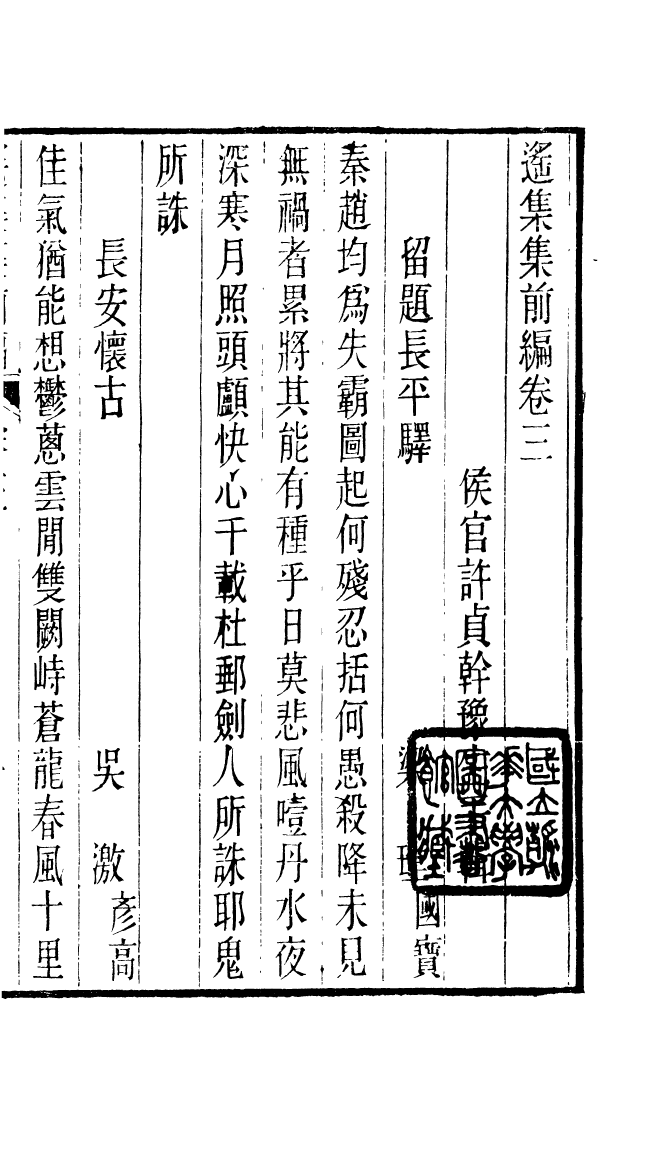 遙集集前編卷三
侯官許貞幹豫
留題長平驛 梁 國寶
秦趙均為失霸圖起何殘忍括何愚殺降未見
無禍者累將其能有種乎日莫悲風噎丹水夜
深寒月照頭顱快心千載杜郵劍人所誅耶鬼
所誅
長安懷古 吳 激彥高
佳氣猶能想鬱蔥雲閒雙闕峙蒼龍春風十里
國立
大學